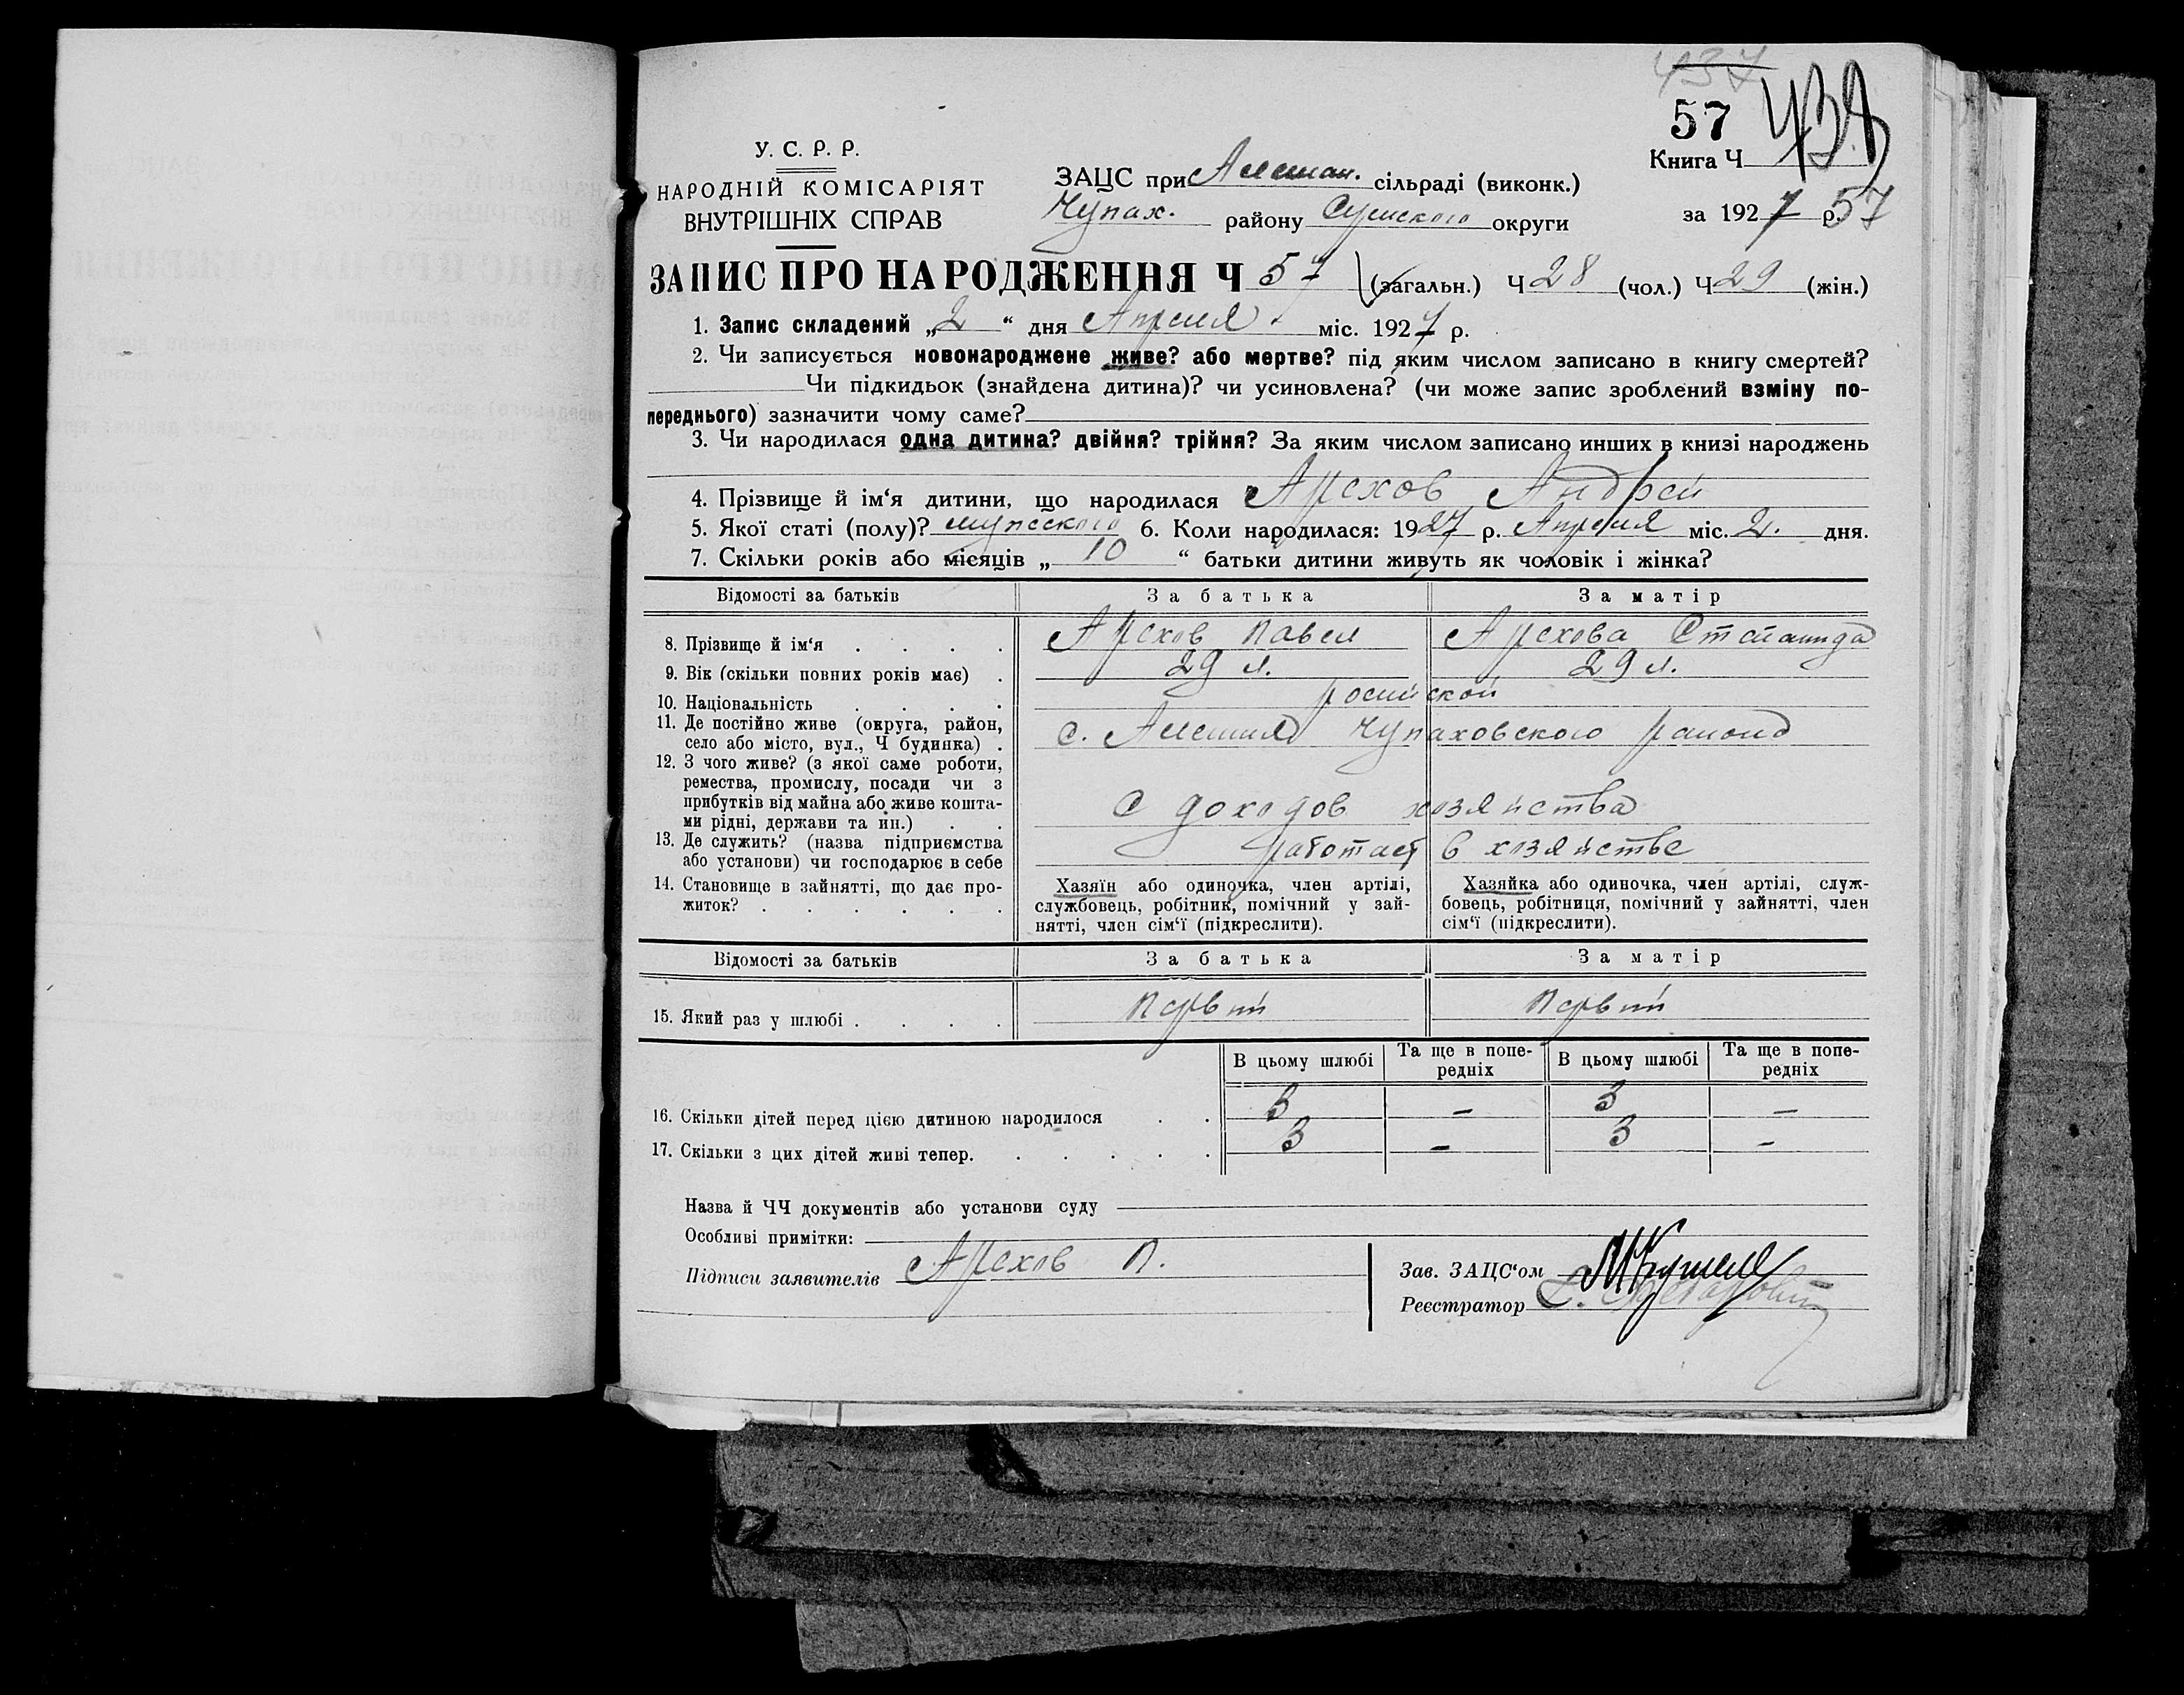 437
57 438
У. С. Р. Р.
НАРОДНІЙ КОМІСАРІЯТ
ВНУТРІШНІХ СПРАВ
ЗАЦС при Алешан. сільраді (виконк.)
Чупах. району Сумского округи
Книга Ч
за 1927 р. 57
ЗАПИС ПРО НАРОДЖЕННЯ Ч 57 (загальн.) Ч 28 (чол.) Ч 29 (жін.)
1. Запис складений „2“ дня Апреля міс. 1927 р.
2. Чи записується новонароджене живе? або мертве? під яким числом записано в книгу смертей?
Чи підкидьок (знайдена дитина)? чи усиновлена? (чи може запис зроблений взміну по-
переднього) зазначити чому саме?
3. Чи народилася одна дитина? двійня? трійня? За яким числом записано инших в книзі народжень
4. Прізвище й ім‘я дитини, що народилася Арехов Андрей
5. Якої статі (полу)? мужского 6. Коли народилася: 1927 р. Апреля міс. 2. дня.
7. Скільки років або місяців „ 10 “ батьки дитини живуть як чоловік і жінка?
Відомості за батьків За батька За матір
8. Прізвище й ім‘я . . . . Арехов Павел Арехова Степанида
9. Вік (скільки повних років має) . 29 л. 29 л.
10. Національність . . . . росийской
11. Де постійно живе (округа, район,
село або місто, вул., Ч будинка) . с. Алешня Чупаховского района
12. З чого живе? (з якої саме роботи,
ремества, промислу, посади чи з
прибутків від майна або живе кошта-
ми рідні, держави та ин.) . . С доходов хозяйства
13. Де служить? (назва підприємства
або установи) чи господарює в себе работает в хозяйстве
14. Становище в зайнятті, що дає про-
житок? . . . . . .
Хазяїн або одиночка, член артілі,
службовець, робітник, помічний у зай-
нятті, член сім‘ї (підкреслити).
Хазяйка або одиночка, член артілі, служ-
бовець, робітниця, помічний у зайнятті, член
сім‘ї (підкреслити).
Відомості за батьків За батька За матір
15. Який раз у шлюбі . . . . Первый Первый
В цьому шлюбі Та ще в попе-
редніх В цьому шлюбі Та ще в попе-
редніх
16. Скільки дітей перед цією дитиною народилося . . 3 – 3 –
17. Скільки з цих дітей живі тепер. . . . . . 3 – 3 –
Назва й ЧЧ документів або установи суду
Особливі примітки:
Підписи заявителів Арехов П.
Зав. ЗАЦС‘ом
Реєстратор